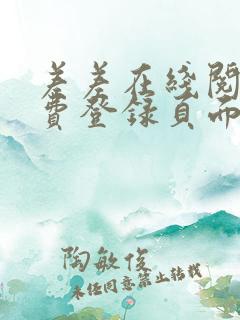 羞羞在线阅
费登录页面
陶敏俊
未经同意禁止转载